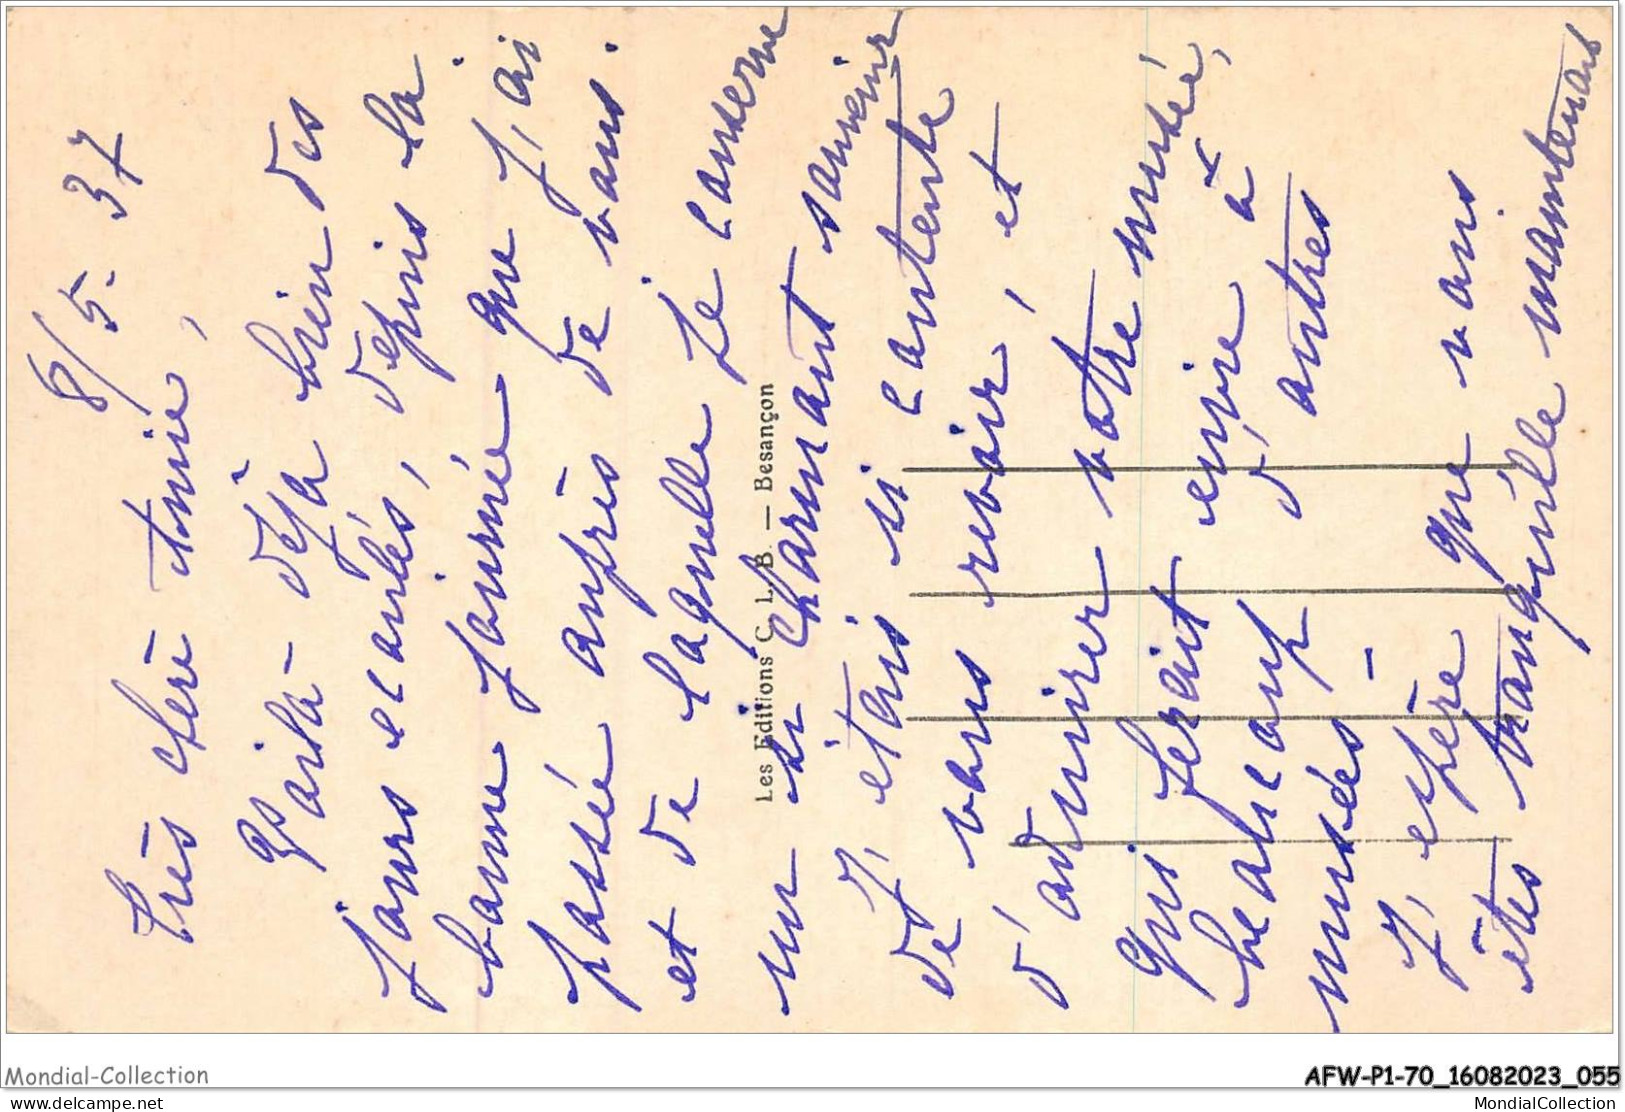 8/5-37
Très chère Amie,
Voilà - déjà bien des
jours écoulés, depuis la
bonne journée que j'ai
passée auprès de vous.
et de laquelle je conserve
un si charmant souvenir
J'étais si contente
de vous revoir, et
d'admirer votre musée,
qui ferait envie à
beaucoup d'autres
musées -
J'espère que vous
êtes tranquille maintenant
Les Editions C. L. B. — Besançon
Mondial-Collection
AFW-P1-70_16082023_055
www.delcampe.net
MondialCollection